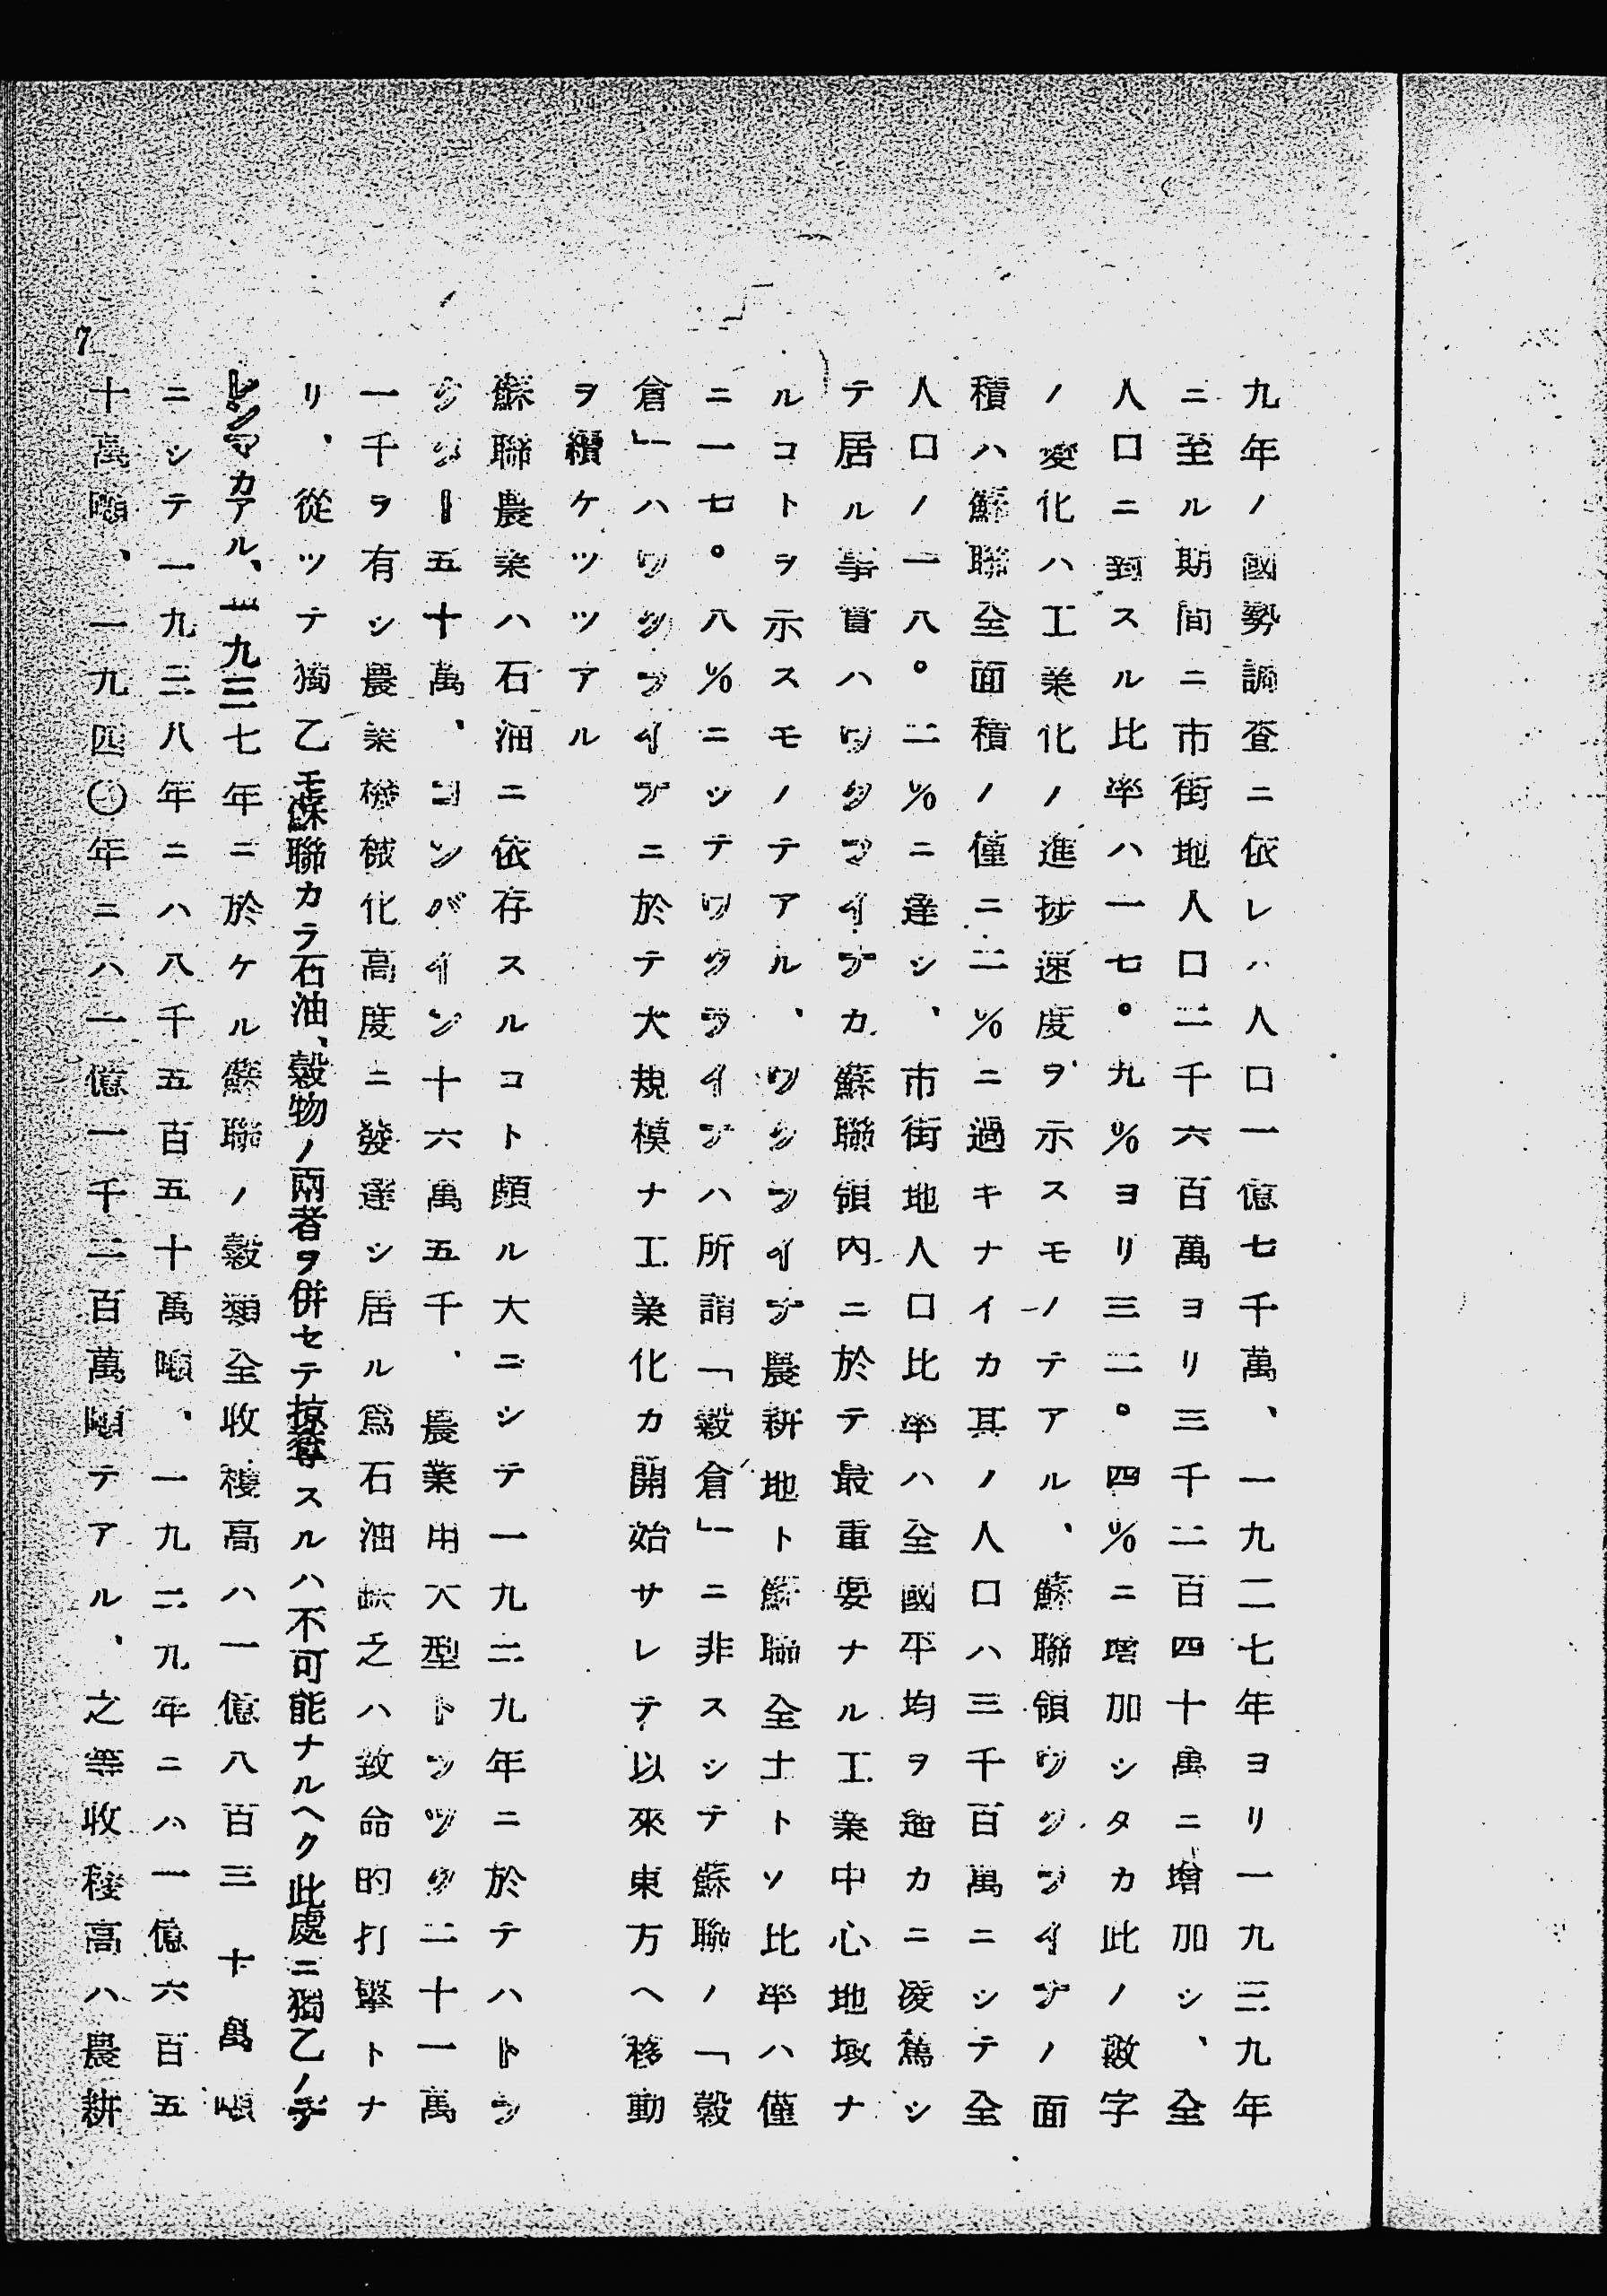 九年ノ國勢調査ニ依レハ人口一億七千萬、一九二七年ヨリ一九三九年
ニ至ル期間ニ市街地人口二千六百萬ヨリ三千二百四十萬ニ増加シ、全
人口ニ對スル比率ハ一七。九%ヨリ三二。四%ニ増加シタカ此ノ數字
ノ変化ハ工業化ノ進捗速度ヲ示スモノテアル、蘇聯領ウクライナノ面
積ハ蘇聯全面積ノ僅ニ二%ニ過キナイカ其ノ人口ハ三千百萬ニシテ全
人口ノ一八。二%ニ達シ、市街地人口比率ハ全國平均ヲ遙カニ凌駕シ
テ居ル事實ハウクライナカ蘇聯領内ニ於テ最重要ナル工業中心地域ナ
ルコトヲ示スモノテアル、ウクライナ農耕地ト蘇聯全土トソ比率ハ僅
ニ一七。八%ニシテウクライナハ所謂「穀倉」ニ非スシテ蘇聯ノ「穀
倉」ハウクライナニ於テ大規模ナ工業化カ開始サレテ以來東方ヘ移動
ヲ續ケツツアル
蘇聯農業ハ石油ニ依存スルコト頗ル大ニシテ一九二九年ニ於テハトラ
クター五十萬、コンバイン十六萬五千、農業用大型トラック二十一萬
一千ヲ有シ農業機械化高度ニ發達シ居ル爲石油缺乏ハ致命的打撃トナ
リ、從ツテ獨乙モ蘇聯カラ石油、穀物ノ兩者ヲ併セテ掠奪スルハ不可能ナルヘク此處ニ獨乙ノヂ
レンマカアル、一九三七年ニ於ケル蘇聯ノ穀類全收穫高ハ一億八百三十萬噸
ニシテ一九三八年ニハ八千五百五十萬噸、一九二九年ニハ一億六百五
十萬噸、一九四〇年ニハ一億一千二百萬噸テアル、之等收穫高ハ農耕
7